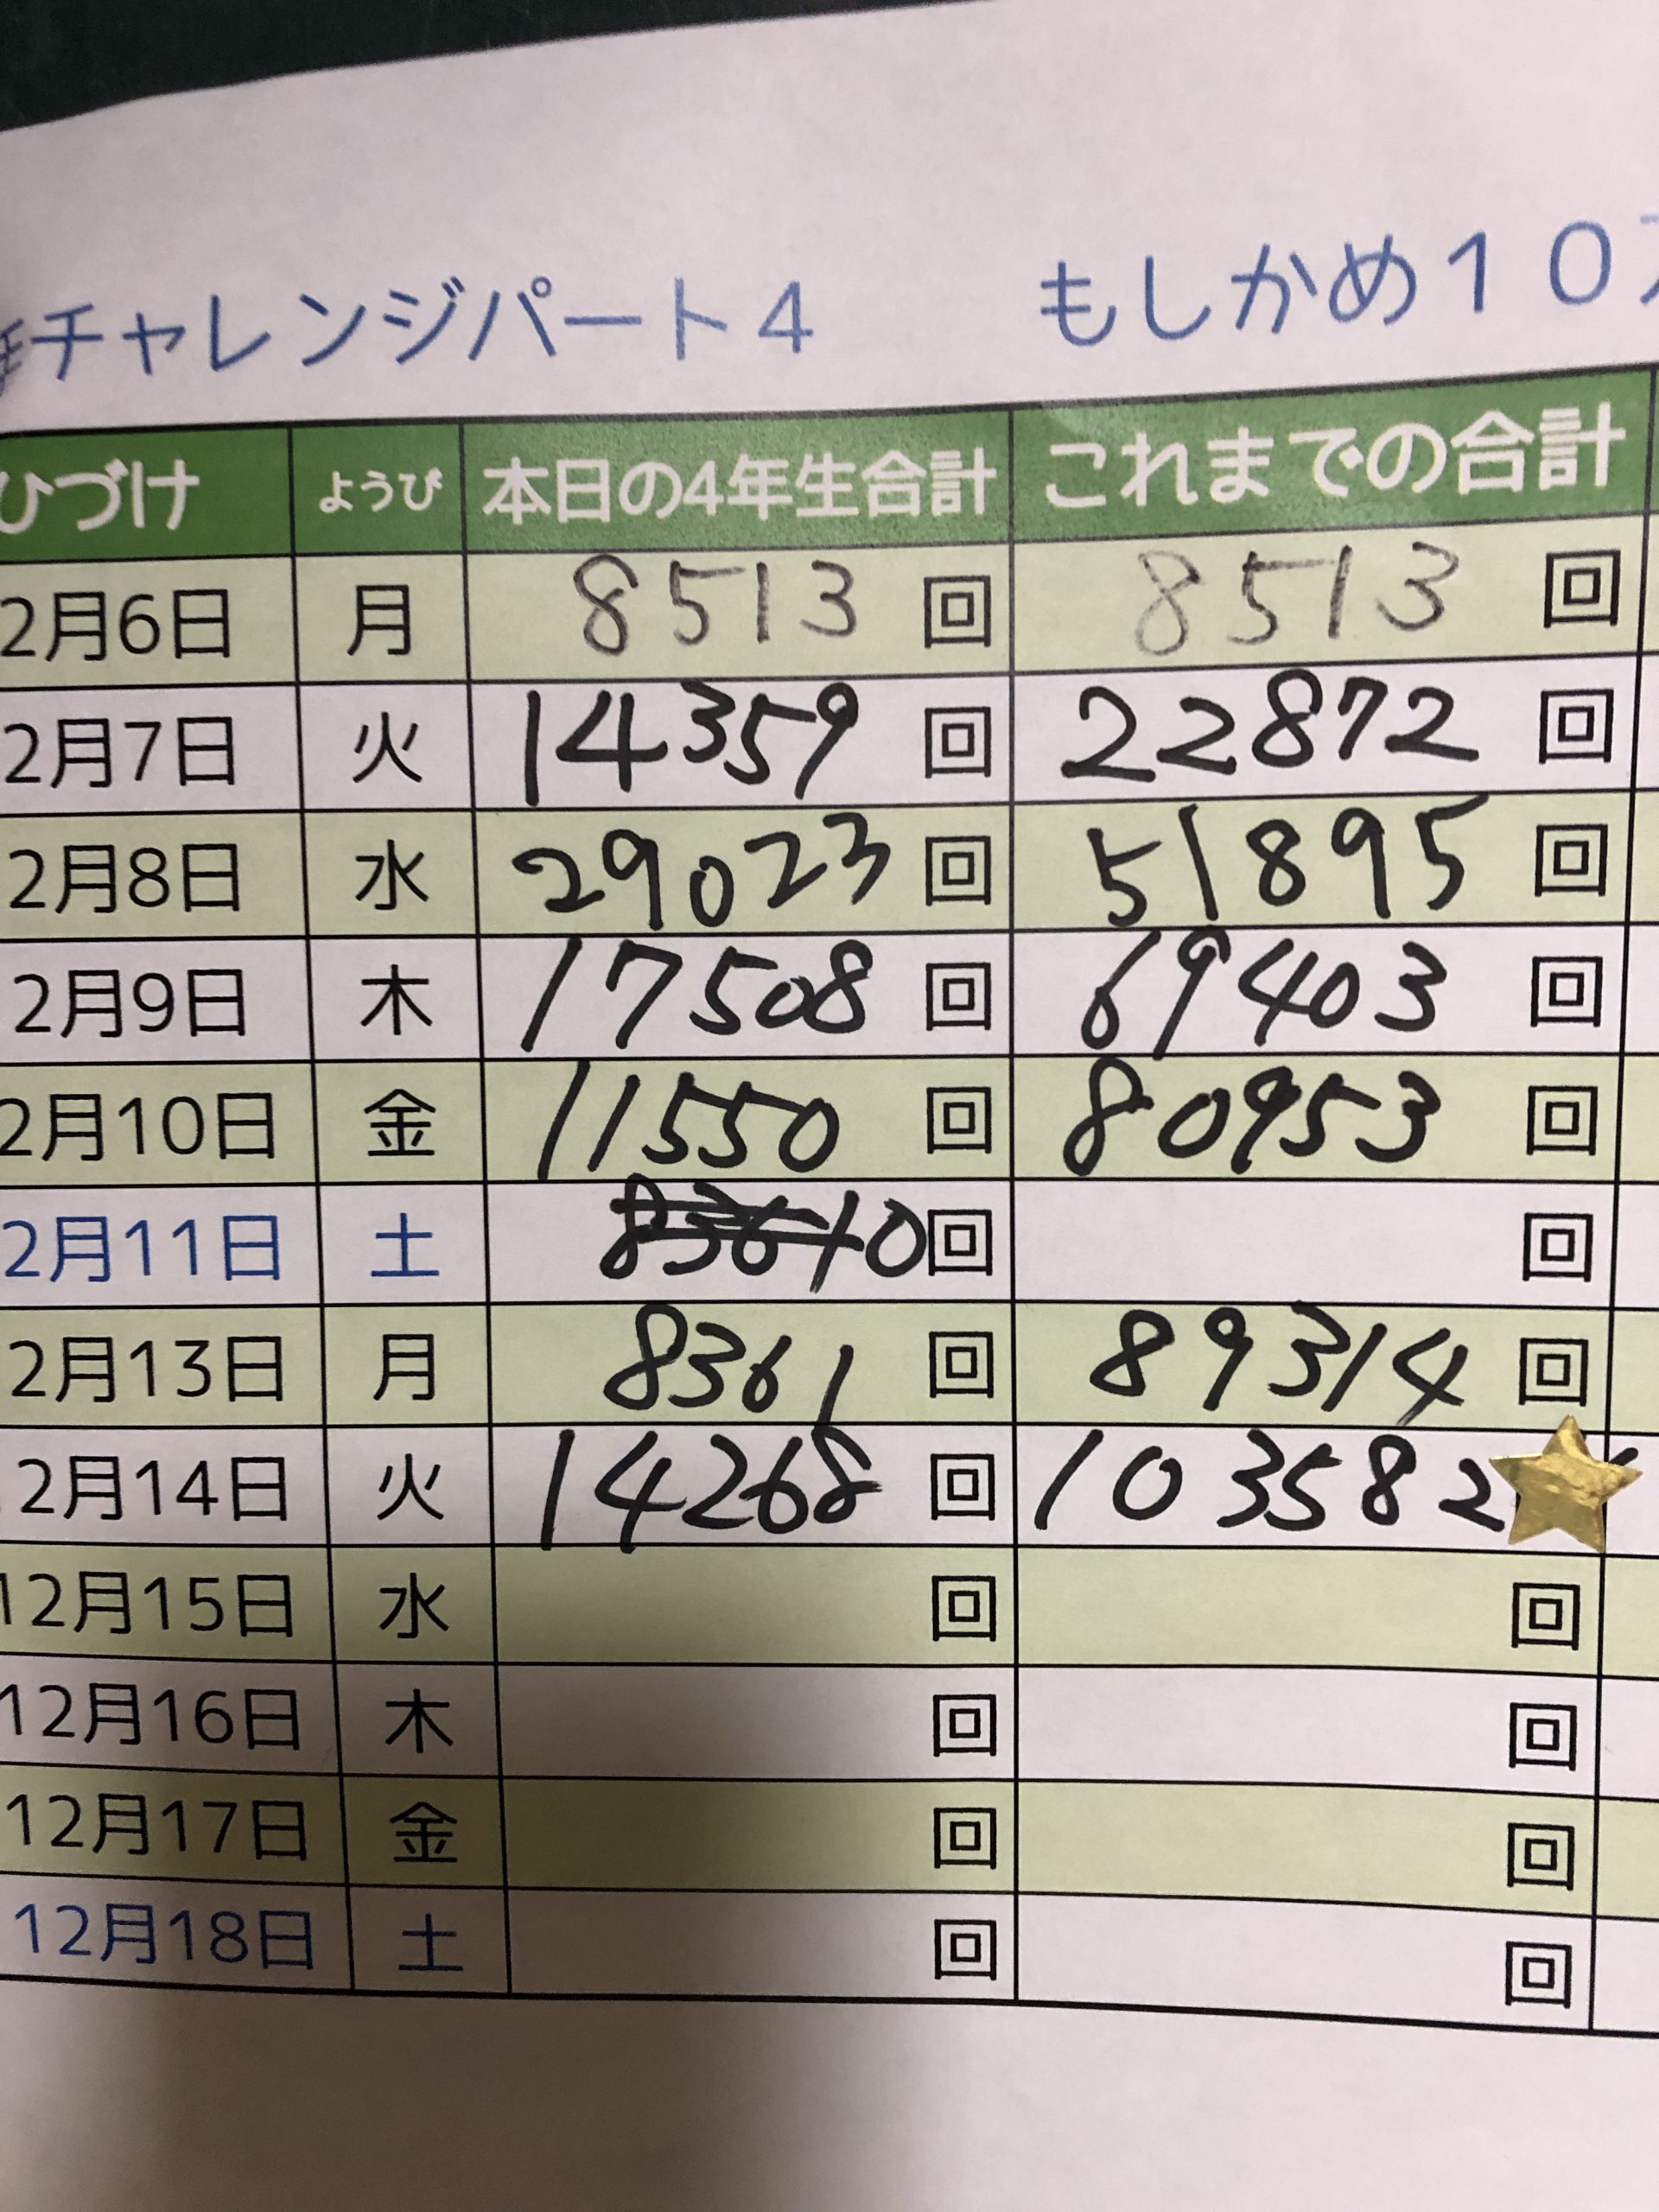 チャレンジパート4 もしかめ10
ひづけ ようび 本日の4年生合計 これまでの合計
2月6日 月 8513 回 8513 回
2月7日 火 14359 回 22872 回
2月8日 水 29023 回 51895 回
2月9日 木 17508 回 69403 回
2月10日 金 11550 回 80953 回
2月11日 土 0 回 回
2月13日 月 8361 回 89314 回
2月14日 火 14268 回 103582
12月15日 水 回 回
12月16日 木 回 回
12月17日 金 回 回
12月18日 土 回 回